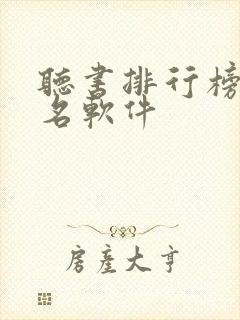 聽書排行榜
名軟件
房產大亨